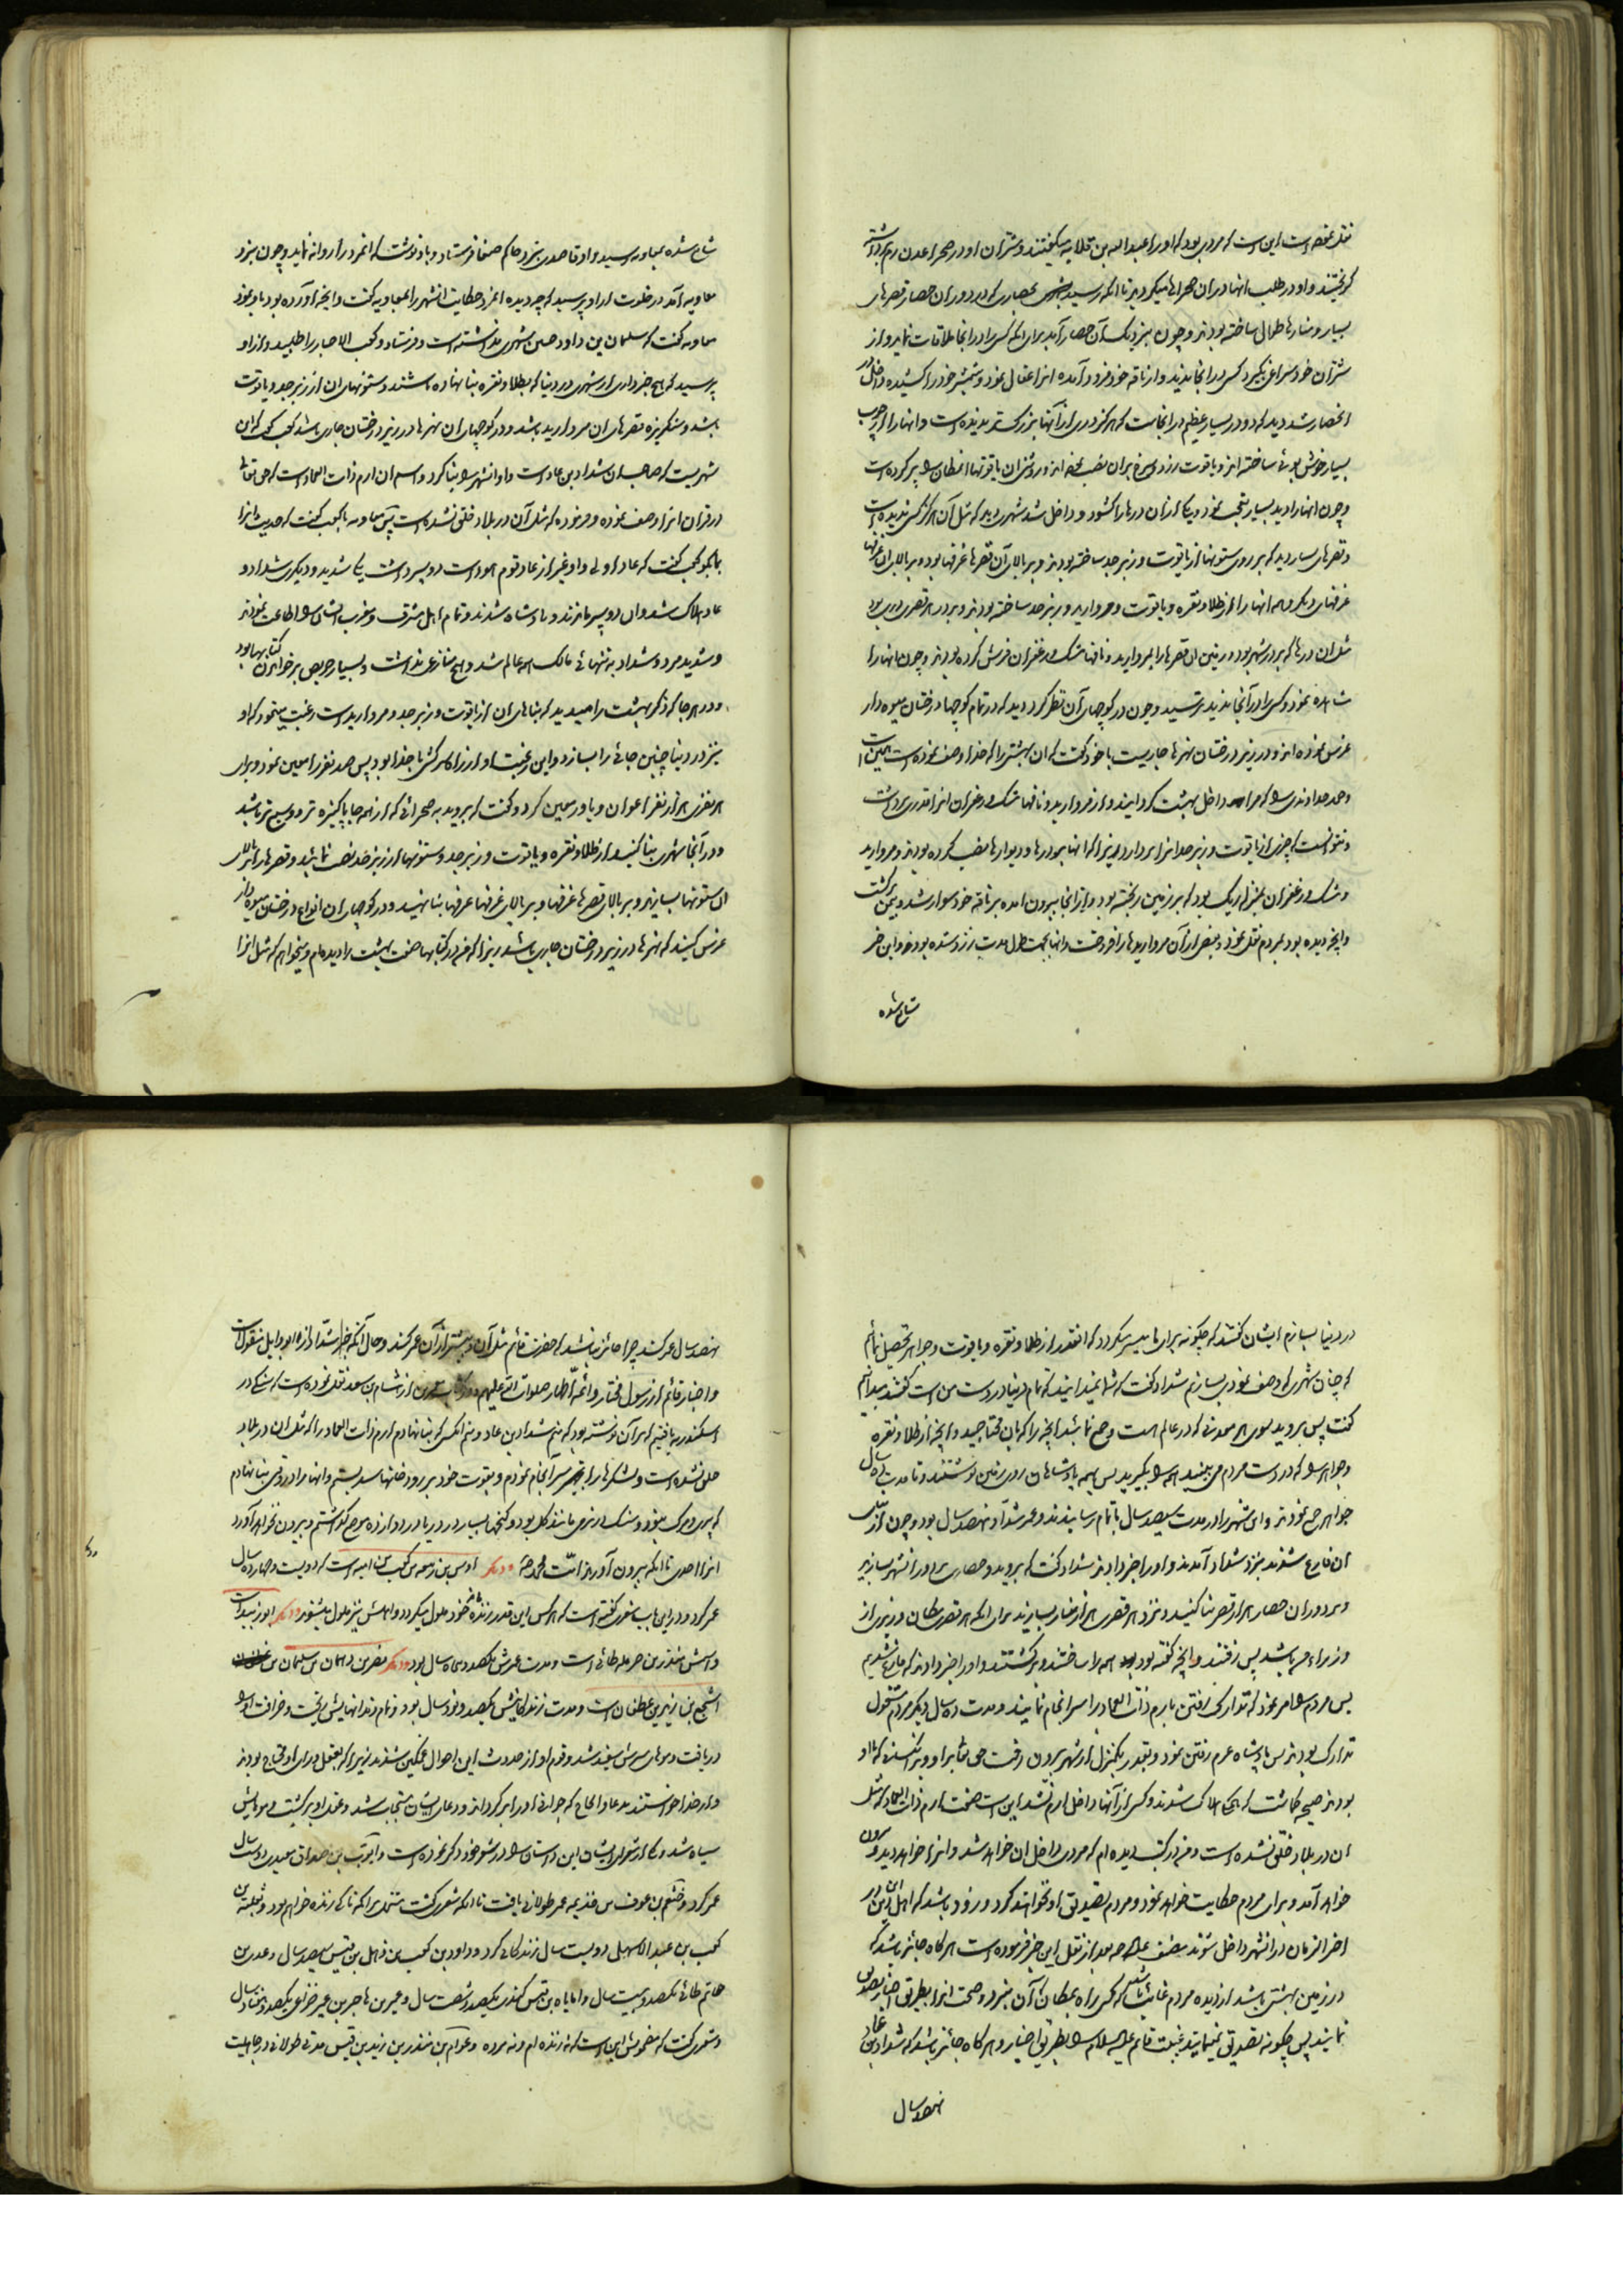 نقل نموده است این است که مردی بود که او را عبدالله بن قلابه میگفتند و شتران او در صحرای عدن رم برداشته
گریختند و او در طلب انها در ان صحراها میکردید تا انکه رسید بحصاری که در دور ان حصار قصرهای
بسیار و منارها طولانی ساخته بودند و چون بنزدیک آن حصار آمد برای انکه کسی را در انجا ملاقات نماید و از
شتران خود سراغ بگیرد کسی در انجا ندید و از ناقه خود فرود آمده انرا عقال نمود و شمشیر خود را کشیده داخل
انحصار شد دید که دو در بسیار عظیم در انجاست که هرگز دری از آنها بزرگتر ندیده است و انها را از چوب
بسیار خوش بوئی ساخته اند و یاقوت زرد و سرخ بر ان نصب نموده اند و روشنی ان یاقوتها ان مکان را پر کرده است
و چون انها را دید بسیار تعجب نمود و یکی از ان درها را کشود و داخل شد شهری دید که مثل آن هرگز کسی ندیده است
و قصرهای بسیار دید که بر روی ستونها از یاقوت و زبرجد ساخته بودند و بر بالای آن قصرها غرفها بود و بر بالای ان غرفها
غرفهای دیگر و همه انها را از طلا و نقره و یاقوت و مروارید و زبرجد ساخته بودند و بر در هر قصری دری بود
مثل ان درها که بر در شهر بود و زمین ان قصرها را بمروارید و نافهای مشک و زعفران فرش کرده بودند و چون انها را
مشاهده نمود و کسی را در آنجا ندید ترسید و چون در کوچهای آن نظر کرد دید که در تمام کوچها درختان میوه دار
غرس نموده اند و در زیر درختان نهرها جاریست با خود گفت که ان بهشتی را که خدا وصف نموده است همین است
و حمد خداوندی را که مرا داخل بهشت کردانید و از مروارید و نافهای مشک و زعفران انرا قدری برداشت
و نتوانست که چیزی از یاقوت و زبرجد انرا بردارد زیرا که انها بدرها و دیوارها نصب کرده بودند و مروارید
و مشک و زعفران بمنزله ریگ بود که بر زمین ریخته بود و از انجا بیرون امده بر ناقه خود سوار شد و بیمن برگشت
و انچه دیده بود بمردم نقل نمود و بعضی از آن مرواریدها را فروخت و انها بجهت طول مدت زرد شده بودند و این خبر
شایع شده
شایع شده بمعاویه رسید و او قاصدی بنزد حاکم صنعا فرستاد و باو نوشت که انمرد را روانه نماید و چون بنزد
معاویه آمد در خلوت از او پرسید که چه دیده انمرد حکایت انشهر را بمعاویه گفت و انچه آورده بود باو نمود
معاویه گفت که سلیمان بن داود همین شهری نداشته است و فرستاد و کعب الاحبار را طلبید و از او
پرسید که هیچ خبر داری از شهری در دنیا که بطلا و نقره بنا نهاده باشند و ستونهای ان از زبرجد و یاقوت
باشد و سنگریزه قصرهای ان مروارید باشد و در کوچهای ان نهرها در زیر درختان جاری باشد کعب گفت که این
شهریست که صاحب ان شداد بن عاد است و او انشهر را بنا کرد و اسم ان ارم ذات العماد است که حق تعالی
در قران انرا وصف نموده و فرموده که مثل آن در بلاد خلق نشده است پس معاویه با کعب گفت که حدیث انرا
بما بگو کعب گفت که عاد اولی و او غیر از عاد قوم هود است دو پسر داشت یکی شدید و دیگری شداد و
عاد هلاک شد و ان دو پسر ماندند و پادشاه شدند و تمام اهل مشرق و مغرب ایشان را اطاعت نمودند
و شدید مرد و شداد به تنهائی مالک همه عالم شد و هیچ منازعی نداشت و بسیار حریص بر خواندن کتابها بود
و در هر جا که ذکر بهشت را میدید که بناهای ان از یاقوت و زبرجد و مروارید است رغبت مینمود که او
نیز در دنیا چنین جائی را بسازد و این رغبت او از راه سرکشی با خدا بود پس صد نفر را معین نمود و برای
هر نفری هزار نفر اعوان و یاور معین کرد و گفت که بروید به صحرائی که از همه جا پاکیزه تر و وسیع تر باشد
و در آنجا شهری بنا کنید از طلا و نقره و یاقوت و زبرجد و ستونهای از زبرجد نصب نمائید و قصرها در بالای
ان ستونها بسازید و بر بالای قصرها غرفها و بر بالای غرفها غرفها بنا نهید و در کوچهای ان انواع درختان میوه دار
غرس کنید که نهرها در زیر درختان جاری باشد زیرا که من در کتابها صفت بهشت را دیده ام و میخواهم که مثل انرا
در دنیا بسازم ایشان گفتند که چگونه برای ما میسر میگردد که انقدر از طلا و نقره و یاقوت و جواهر تحصیل نمائیم
که چنان شهری که وصف نمودی بسازیم شداد گفت که شما نمیدانید که تمام دنیا در دست من است گفتند میدانیم
گفت پس بروید بسوی هر معدنی که در عالم هست و جمع نمائید انچه را که بان محتاجید و انچه از طلا و نقره
و جواهر را که در دست مردم می بینید همه را بگیرید پس بهمه پادشاهان روی زمین نوشتند و تا مدت ده سال
جواهر جمع نمودند و ان شهر را در مدت سیصد سال باتمام رسانیدند و عمر شداد نهصد سال بود و چون از بنای
ان فارغ شدند بنزد شداد آمدند و او را خبر دادند شداد گفت که بروید و حصاری بر دور انشهر بسازید
و بر دور ان حصار هزار قصر بنا کنید و نزد هر قصری هزار منار بسازید برای انکه هر قصری مکان وزیری از
وزراء من باشد پس رفتند و انچه گفته بود همه را ساختند و برگشتند و او را خبر دادند که فارغ شدیم
پس مردم را امر نمود که تدارک رفتن بارم ذات العماد را سرانجام نمایند و مدت ده سال دیگر مردم مشغول
تدارک بودند پس پادشاه عزم رفتن نمود و بقدر یکمنزل از شهر بیرون رفت حق تعالی بر او و بر کسانی که با او
بودند صیحه گماشت که همگی هلاک شدند و کسی از آنها داخل ارم نشد این است صفت ارم ذات العماد که مثل
ان در بلاد خلق نشده است و من در کتب دیده ام که مردی داخل ان خواهد شد و انرا خواهد دید و بیرون
خواهد آمد و برای مردم حکایت خواهد نمود و مردم تصدیق او نخواهند کرد و زود باشد که اهل این دین در
اخر الزمان در انشهر داخل شوند مصنف علیه الرحمه بعد از نقل این خبر فرموده است هرگاه جائز باشد که
در زمین بهشتی باشد از دیده مردم غائب باشد که کسی راه بمکان آن نبرد و صحت انرا بطریق اخبار تصدیق
نمایند پس چگونه تصدیق نمینمایند غیبت قائم علیه السلام را بطریق اخبار و هرگاه جائز باشد که شداد بن عاد
نهصد سال
نهصد سال عمر کند چرا جائز نباشد که حضرت قائم مثل آن و بیشتر از آن عمر کند و حال آنکه خبر شداد از ابو وایل منقول است
و اخبار قائم از رسول مختار و ائمه اطهار صلوات الله علیهم و در کتاب معمرین از هشام بن سعد نقل نموده است که سنگی در
اسکندریه یافتیم که بر آن نوشته بود که منم شداد بن عاد و منم انکسی که بنا نهادم ارم ذات العماد را که مثل ان در بلاد
خلق نشده است و لشکرها را سرانجام نمودم و بقوت خود بر رودخانها سد بستم و انها را در وقتی بنا نهادم
که پیری و مرگ نبود و سنگ در نرمی مانند گل بود و گنجها بسیار در دریا در دوازده موضع گذاشتم و بیرون نخواهد آورد
انرا احدی تا انکه بیرون آورند امت محمد ص و دیگر اوس بن ربیعه بن کعب بن امیه است که دویست و چهارده سال
عمر کرد و در این باب شعری گفته است که هرکس این قدر زنده ماند از خود ملول میگردد و اهلش نیز ملول میشوند و دیگر ابو زبید است
و اسمش منذر بن حرمله طائی است و مدت عمرش یکصد و پنجاه سال بود و دیگر نصر بن دهمان بن سلیمان بن
اشجع بن زید بن غطفان است و مدت زندگانیش یکصد و نود سال بود و تمام دندانهایش ریخت و خرافت او را
دریافت و موهای سرش سفید شد و قوم او از حدوث این احوال غمگین شدند زیرا که بعقل و رای او محتاج بودند
و از خدا خواستند بدعا و الحاح که جوانی او را برگرداند و دعای ایشان مستجاب شد و عقل او برگشت و موهایش
سیاه شد و یکی از شعرای ایشان این داستان را در شعر خود ذکر نموده است و ابو بن صداق عبدی دویست سال
عمر کرد و خثعم بن عوف بن جذیمه عمر طولانی یافت تا انکه شعری گفت متضمن انکه تا کی زنده خواهم بود و ثعلبه بن
کعب بن عبد الاشهل دویست سال زندگانی کرد و داود بن کعب بن ذهل بن قیس سیصد سال و عدی بن
حاتم طائی یکصد و بیست سال و اماباه بن قیس کندی یکصد و شصت سال و عمیر بن هاجر بن عمیر خزاعی یکصد و هفتاد سال
و شعری گفت که مضمونش این است که نه زنده ام و نه مرده و عوام بن منذر بن زبید بن قیس مدتی طولانی در جاهلیت